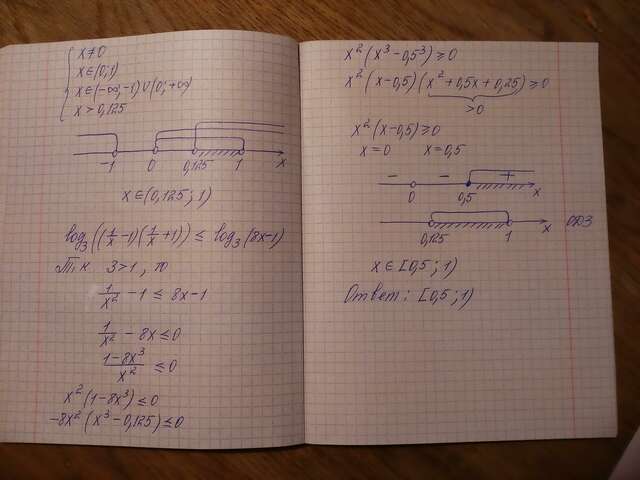 x≠0
x∈(0;1)
x∈(-∞;-1)∪(0;+∞)
x>0,125
-1 0 0,125 1 x
x∈(0,125;1)
log₃((1/x-1)(1/x+1))≤log₃(8x-1)
Т.к. 3>1, то
1/x²-1≤8x-1
1/x²-8x≤0
(1-8x³)/x²≤0
x²(1-8x³)≤0
-8x²(x³-0,125)≤0
x²(x³-0,5³)≥0
x²(x-0,5)(x²+0,5x+0,25)≥0
>0
x²(x-0,5)≥0
x=0 x=0,5
- - +
0 0,5 x
ОДЗ
0,125 1 x
x∈[0,5;1)
Ответ: [0,5;1)